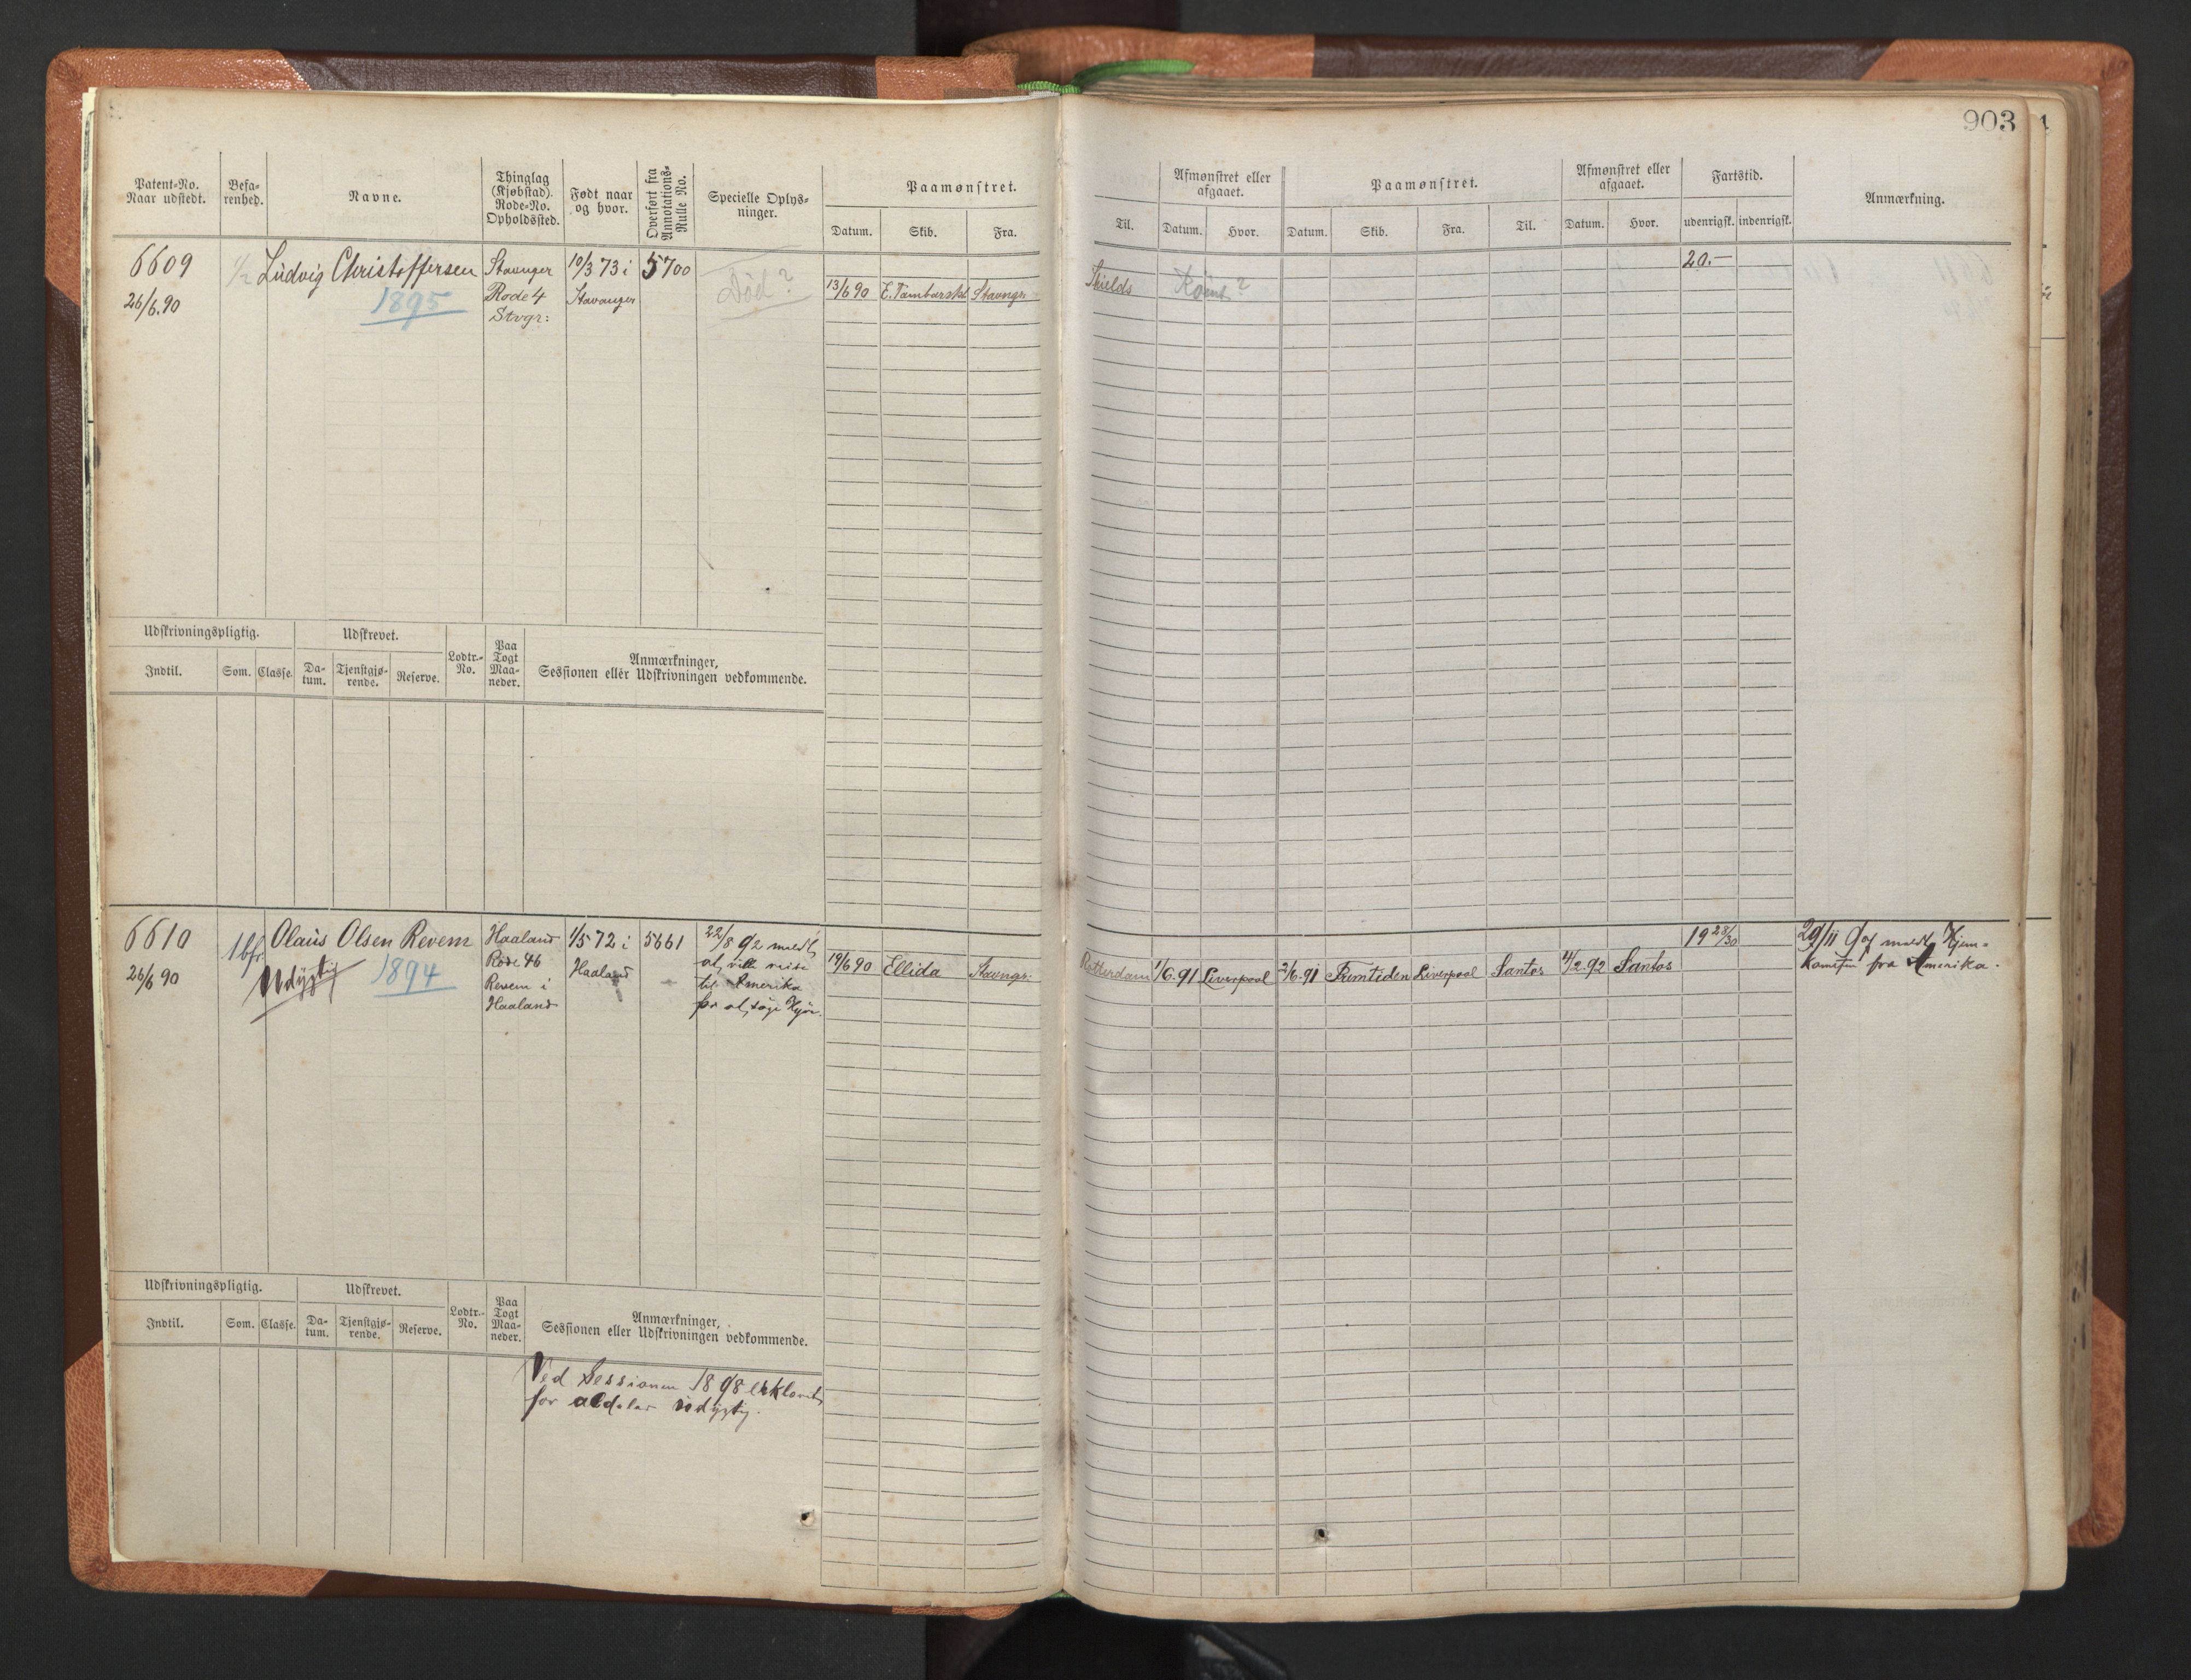 903
Patent-No.
Naar udstedt.
Befa-
renhed.
Navne.
Thinglag
(Kjøbstad).
Rode-No.
Opholdssted.
Født naar
og hvor.
Overført fra
Annotations-
Rulle No.
Specielle Oplys-
ninger.
Paamønstret.
Datum. Skib. Fra.
Til.
Afmønstret eller
afgaaet.
Datum. Hvor.
Paamønstret.
Datum. Skib. Fra. Til.
Afmønstret eller
afgaaet.
Datum. Hvor.
Fartstid.
udenrigsk. indenrigsk.
Anmærkning.
6609
26/6.90
1/2
Ludvig Christoffersen
1895
Stavanger
Rode 4
Stvgr:
10/3 73 i
Stavanger
5700
Död?
13/6 90 Stavngr
Shields
20.-
Udskrivningspligtig.
Indtil. Søm. Classe.
Udskrevet.
Da-
tum.
Tjenstgjø-
rende.
Reserve.
Lodtr.-
No.
Paa
Togt
Maa-
neder.
Anmærkninger,
Sessionen eller Udskrivningen vedkommende.
6610
26/6 90
1bfr
Olaus Olsen Revem
Udygtig
1894
Haaland
Rode 46
Revem i
Haaland
1/5 72 i
Haaland
5661
22/8 92 meldt,
at, ville reise
til Amerika
for at, søge Hyre.
19/6 90 Ellida Stavngr.
Rotterdam 1/6.91 Liverpool 2/6.91 Fremtiden Liverpool Santos 4/2.92 Santos
19 28/30
29/11 97 meldt Hjem-
kommen fra Amerika.
Udskrivningspligtig.
Indtil. Søm. Classe.
Udskrevet.
Da-
tum.
Tjenstgjø-
rende.
Reserve.
Lodtr.-
No.
Paa
Togt
Maa-
neder.
Anmærkninger,
Sessionen eller Udskrivningen vedkommende.
Ved Sessionen 1898 erklæret
for aldeles udygtig.